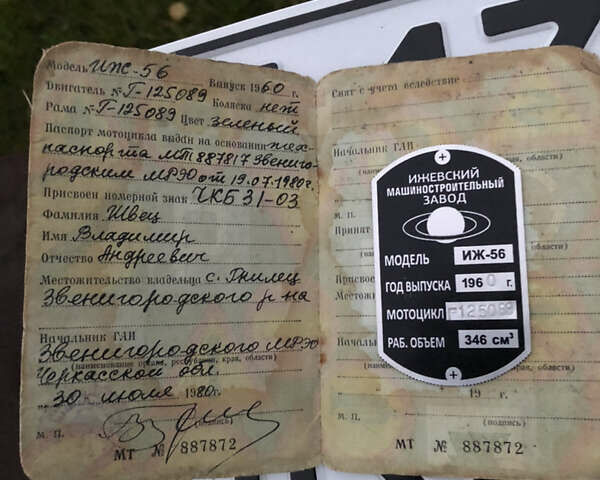 Модель ИЖ-56
Выпуск 1960 г.
Двигатель № Г-125089
Рама № Г-125089 Коляска нет
Цвет зеленый
Паспорт мотоцикла выдан на основании тех-
паспорта МТ 887817 Звени-
городским МРЭО от 19.07.1980г.
Присвоен номерной знак ЧКБ 31-03
Фамилия Швец
Имя Владимир
Отчество Андреевич
Местожительство владельца с. Гнилец
Звенигородского р-на
Начальник ГАИ
Звенигородского МРЭО
(наименование органа, республики, края, области)
Черкасской обл.
„ 30 " июля 1980г.
М. П.
(подпись)
МТ № 887872
Снят с учета вследствие
Начальник ГАИ
края, области)
М. П.
Принят
области)
Присвоен
Местожи
Начальник
(наим
области)
19 г.
М. П.
(подпись)
МТ № 887872
ИЖЕВСКИЙ
МАШИНОСТРОИТЕЛЬНЫЙ
ЗАВОД
МОДЕЛЬ ИЖ-56
ГОД ВЫПУСКА 1960 г.
МОТОЦИКЛ Г125089
РАБ. ОБЪЕМ 346 см³